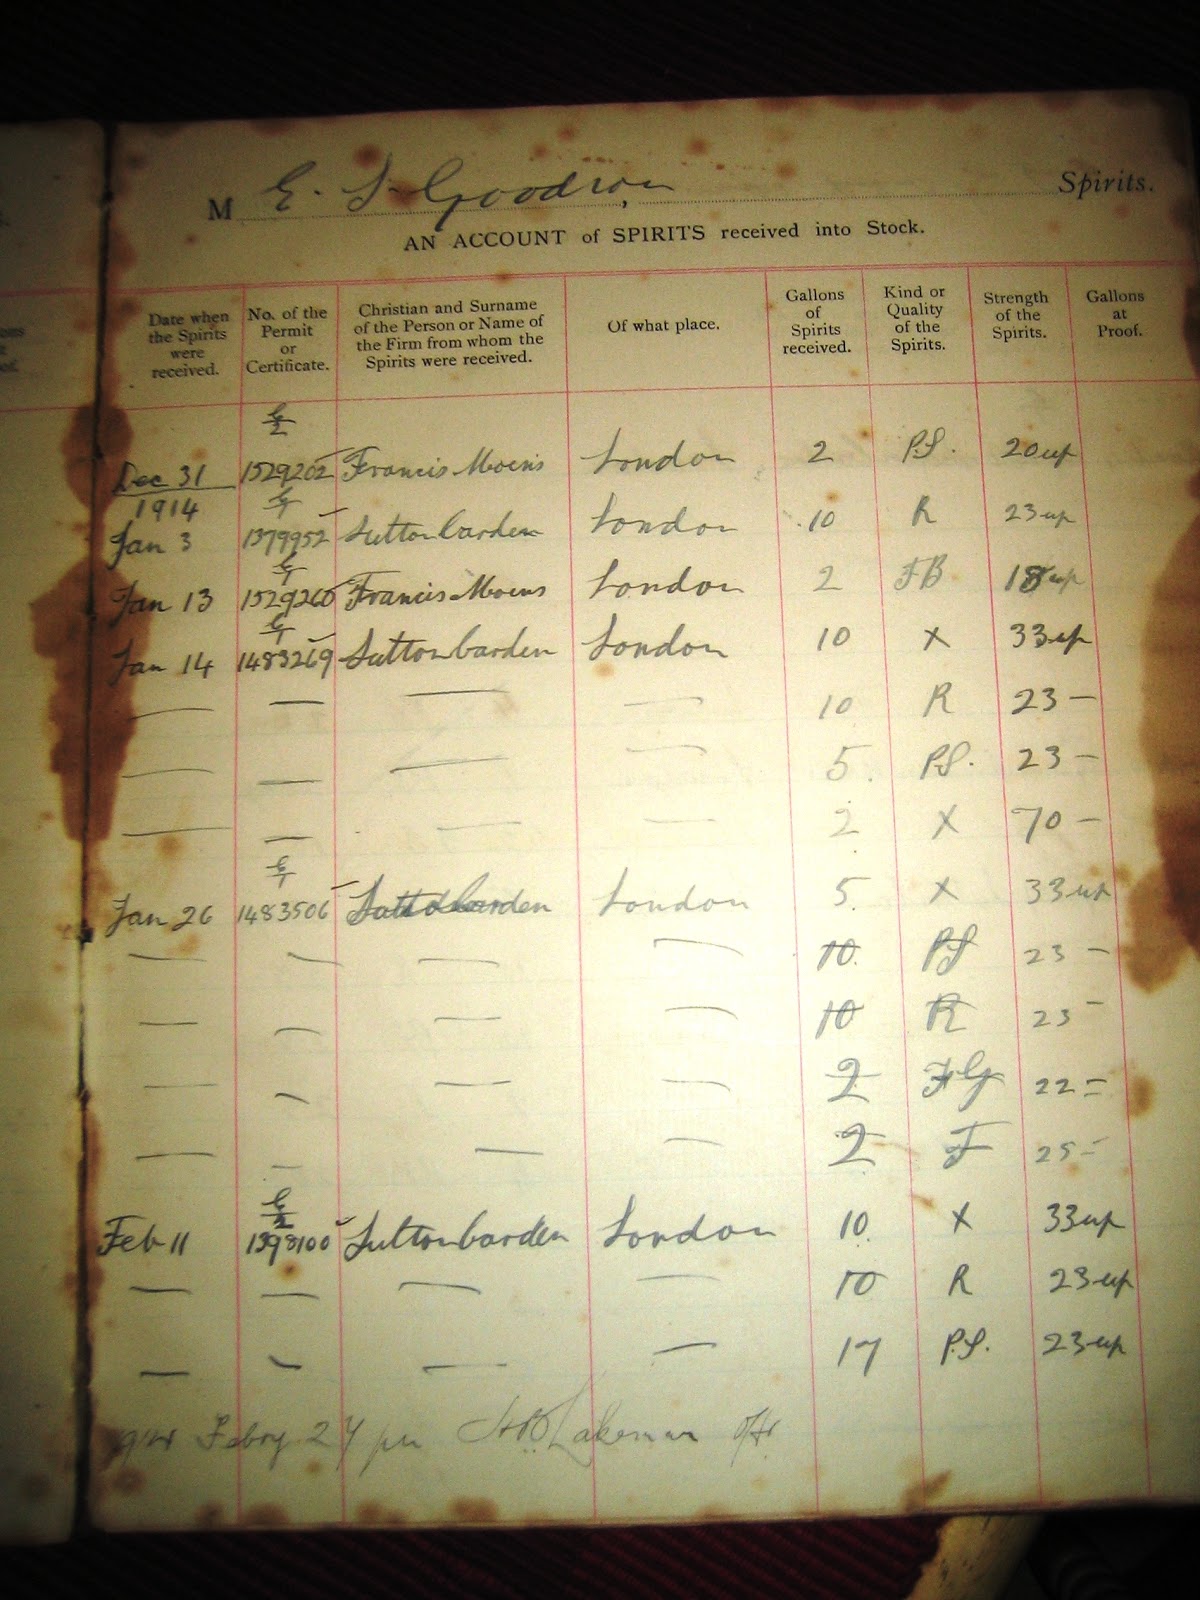 M E. S. Goodson, Spirits.
AN ACCOUNT of SPIRITS received into Stock.
Date when the Spirits were received. No. of the Permit or Certificate. Christian and Surname of the Person or Name of the Firm from whom the Spirits were received. Of what place. Gallons of Spirits received. Kind or Quality of the Spirits. Strength of the Spirits. Gallons at Proof.
Dec 31 1529202 Francis Moens London 2 P.S. 20 up
1914
Jan 3 1379952 Sutton Carden London 10 R 23 up
Jan 13 1529260 Francis Moens London 2 FB 18 up
Jan 14 1483269 Sutton Carden London 10 X 33 up
— — — — 10 R 23 —
— — — — 5. P.S. 23 —
— — — — 2 X 70 —
Jan 26 1483506 Sutton Carden London 5. X 33 up
— — — — 10. PS 23 —
— — — — 10 R 23 —
— — — — 2 FG 22 =
— — — — 2 F 25 =
Feb 11 1398100 Sutton Carden London 10. X 33 up
— — — — 10 R 23 up
— — — — 17 P.S. 23 up
Febry 27 Lakeman